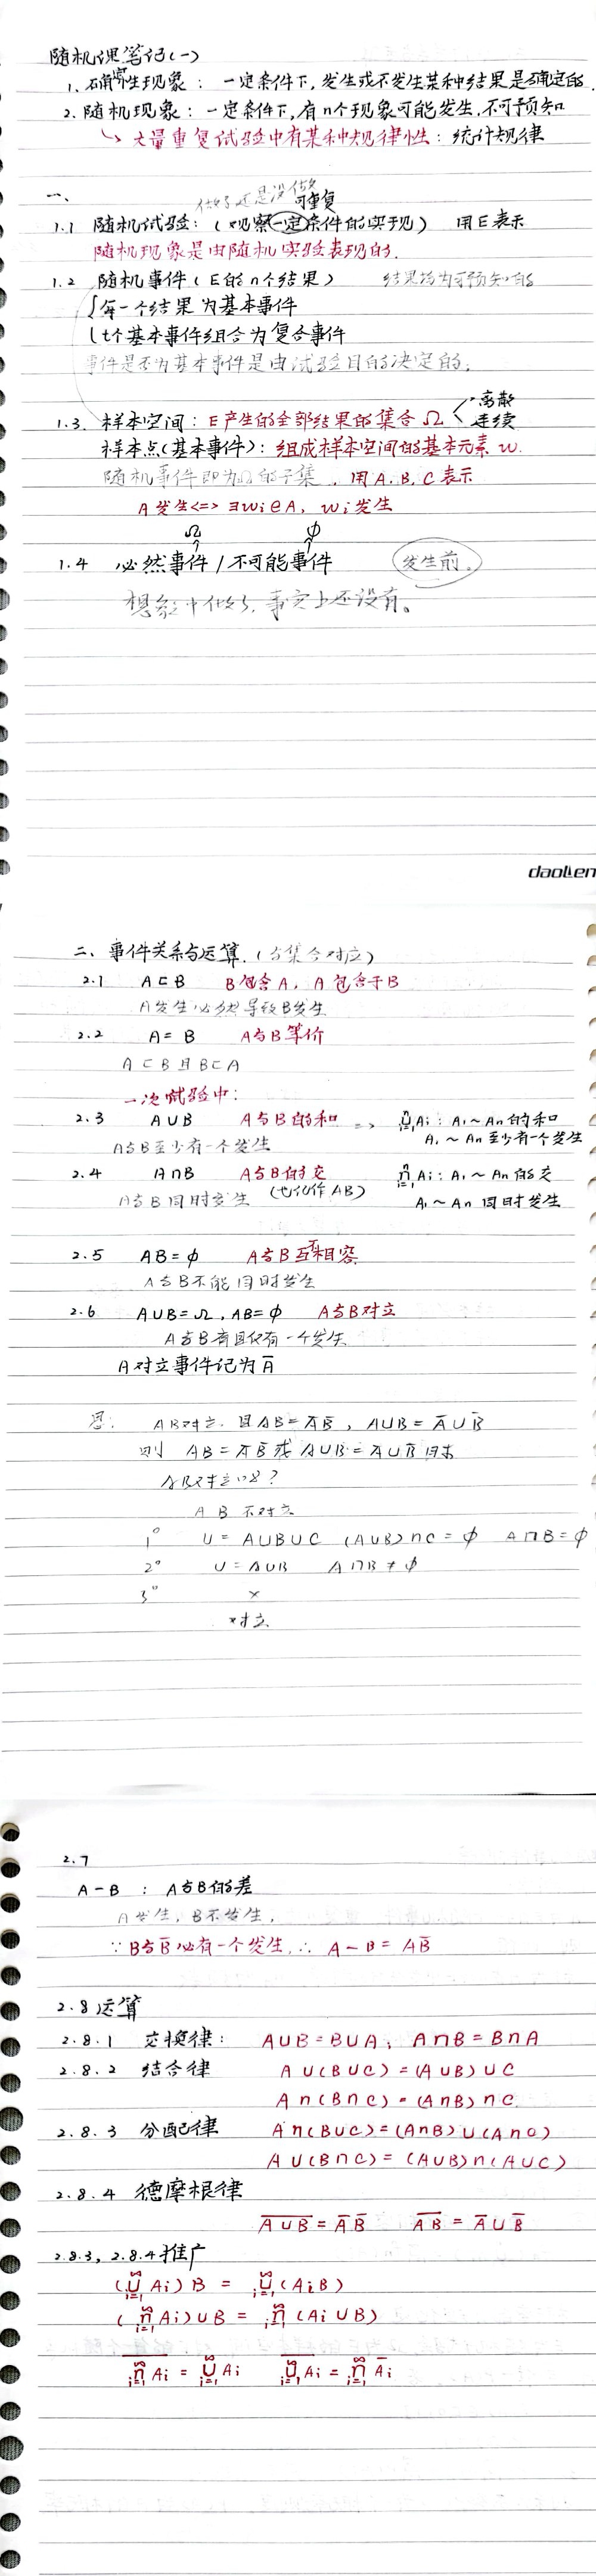 随机课笔记(一)
1. 确定性现象：一定条件下，发生或不发生某种结果是确定的.
2. 随机现象：一定条件下，有n个现象可能发生，不可预知
↳ 大量重复试验中有某种规律性：统计规律
一、
做了还是没做
可重复
1.1 随机试验：(观察一定条件的实现) 用E表示
随机现象是由随机实验表现的.
1.2 随机事件(E的n个结果) 结果均为可预知的
{每一个结果为基本事件
t个基本事件组合为复合事件
事件是否为基本事件是由试验目的决定的.
1.3. 样本空间：E产生的全部结果的集合 Ω < 离散
连续
样本点(基本事件)：组成样本空间的基本元素 w.
随机事件即为Ω的子集，用A.B.C表示
A发生<=> ∃wi∈A, wi发生
Ω ϕ
1.4 必然事件/不可能事件 发生前。
想象中做了，事实上还没有。
daolen
二、事件关系与运算.(与集合对应)
2.1 A⊂B B包含A，A包含于B
A发生必然导致B发生
2.2 A=B A与B等价
A⊂B且B⊂A
一次试验中：
2.3 A∪B A与B的和 => ⋃ⁿᵢ₌₁Ai：A₁~An的和
A与B至少有一个发生 A₁~An至少有一个发生
2.4 A∩B A与B的交 ⋂ⁿᵢ₌₁Ai：A₁~An的交
A与B同时发生 (也记作AB) A₁~An同时发生
2.5 AB=ϕ A与B互不相容
A与B不能同时发生
2.6 A∪B=Ω，AB=ϕ A与B对立
A与B有且仅有一个发生
A对立事件记为A̅
思： AB对立.且AB=A̅B̅，A∪B=A̅∪B̅
则 AB=A̅B̅或A∪B=A̅∪B̅
AB对立吗？
A B 不对立
1° U=A∪B∪C (A∪B)∩C=ϕ A∩B=ϕ
2° U=A∪B A∩B≠ϕ
3° ×
对立
2.7
A-B ：A与B的差
A发生，B不发生，
∵B与B̅必有一个发生，∴ A-B=AB̅
2.8 运算
2.8.1 交换律： A∪B=B∪A；A∩B=B∩A
2.8.2 结合律 A∪(B∪C)=(A∪B)∪C
A∩(B∩C)=(A∩B)∩C
2.8.3 分配律 A∩(B∪C)=(A∩B)∪(A∩C)
A∪(B∩C)=(A∪B)∩(A∪C)
2.8.4 德摩根律
A̅∪̅B̅=A̅ B̅ A̅B̅=A̅∪B̅
2.8.3, 2.8.4推广
(⋃^∞ᵢ₌₁Ai)B = ⋃^∞ᵢ₌₁(AiB)
(⋂^∞ᵢ₌₁Ai)∪B = ⋂^∞ᵢ₌₁(Ai∪B)
‾⋂^∞ᵢ₌₁Ai‾ = ⋃^∞ᵢ₌₁Ai ‾⋃^∞ᵢ₌₁Ai‾ = ⋂^∞ᵢ₌₁A̅i